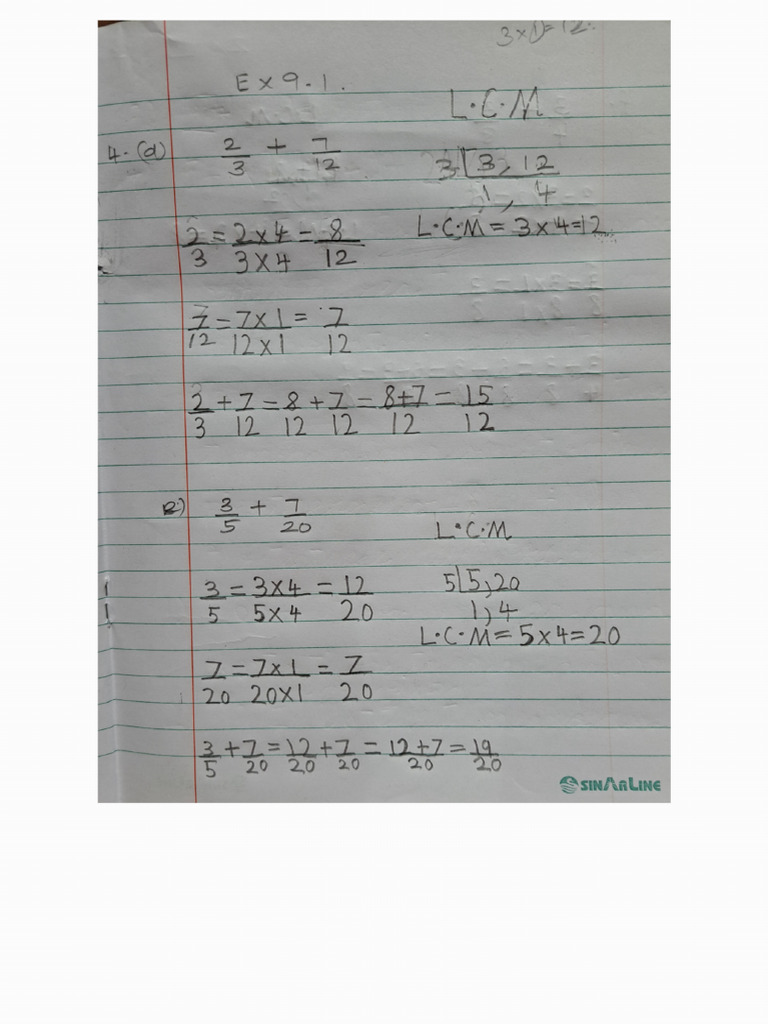 3x1=12.
Ex 9.1.
L.C.M
4. (d) 2/3 + 7/12
3 | 3, 12
1, 4
2/3 = 2x4/3x4 = 8/12
L.C.M = 3x4=12
7/12 = 7x1/12x1 = 7/12
2/3 + 7/12 = 8/12 + 7/12 = 8+7/12 = 15/12
e) 3/5 + 7/20
L.C.M
3/5 = 3x4/5x4 = 12/20
5 | 5, 20
1, 4
L.C.M = 5x4=20
7/20 = 7x1/20x1 = 7/20
3/5 + 7/20 = 12/20 + 7/20 = 12+7/20 = 19/20
SINARLINE